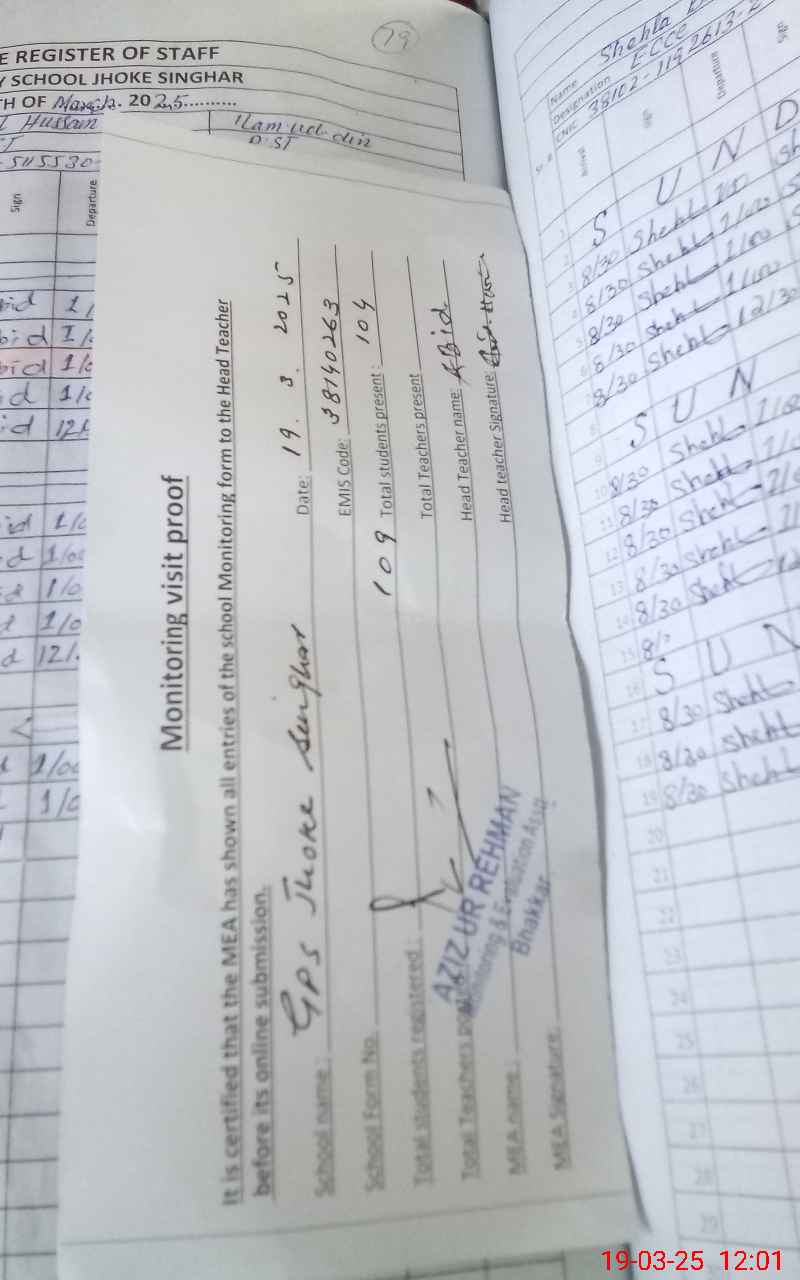 19
E REGISTER OF STAFF
Y SCHOOL JHOKE SINGHAR
TH OF March. 2025..........
Hussain
Ilam ud din
PST
-5115530-
Sign
Departure
bid 1/
bid 1/0
bid 1/0
d 1/0
id 12/
id 1/0
d 1/00
1/0
1/0
d 12/.
1/00
1/0
Monitoring visit proof
It is certified that the MEA has shown all entries of the school Monitoring form to the Head Teacher
before its online submission.
School name : GPS Jhoke Singhar Date: 19. 3. 2025
School Form No. EMIS Code: 38140263
Total students registered : 109 Total students present : 104
Total Teachers Total Teachers present
MEA name : Head Teacher name: Abid
MEA Signature: Head teacher Signature:
AZIZ UR REHMAN
Monitoring & Evaluation Asstt
Bhakkar
Name Shehla
Designation ECCE
CNIC 38102-1192613-2
Sr. #
Arrival
Sign
Departure
Sign
1 S U N D
2 8/30 Shehl 1/00 Sh
3 8/30 Shehl 1/00
4 8/30 Shehl 1/00
5 8/30 Shehl 1/00
6 8/30 Shehl 12/30
7 8/30
8 S U N
9
10 8/30 Shehl 1/00
11 8/30 Shehl 1/0
12 8/30 Shehl 1/0
13 8/30 Shehl 1/
14 8/30 Shehl 12
15 8/
16 S U N
17 8/30 Shehl
18 8/30 Shehl
19 8/30 Shehl
20
21
22
23
24
25
26
27
28
29
19-03-25 12:01